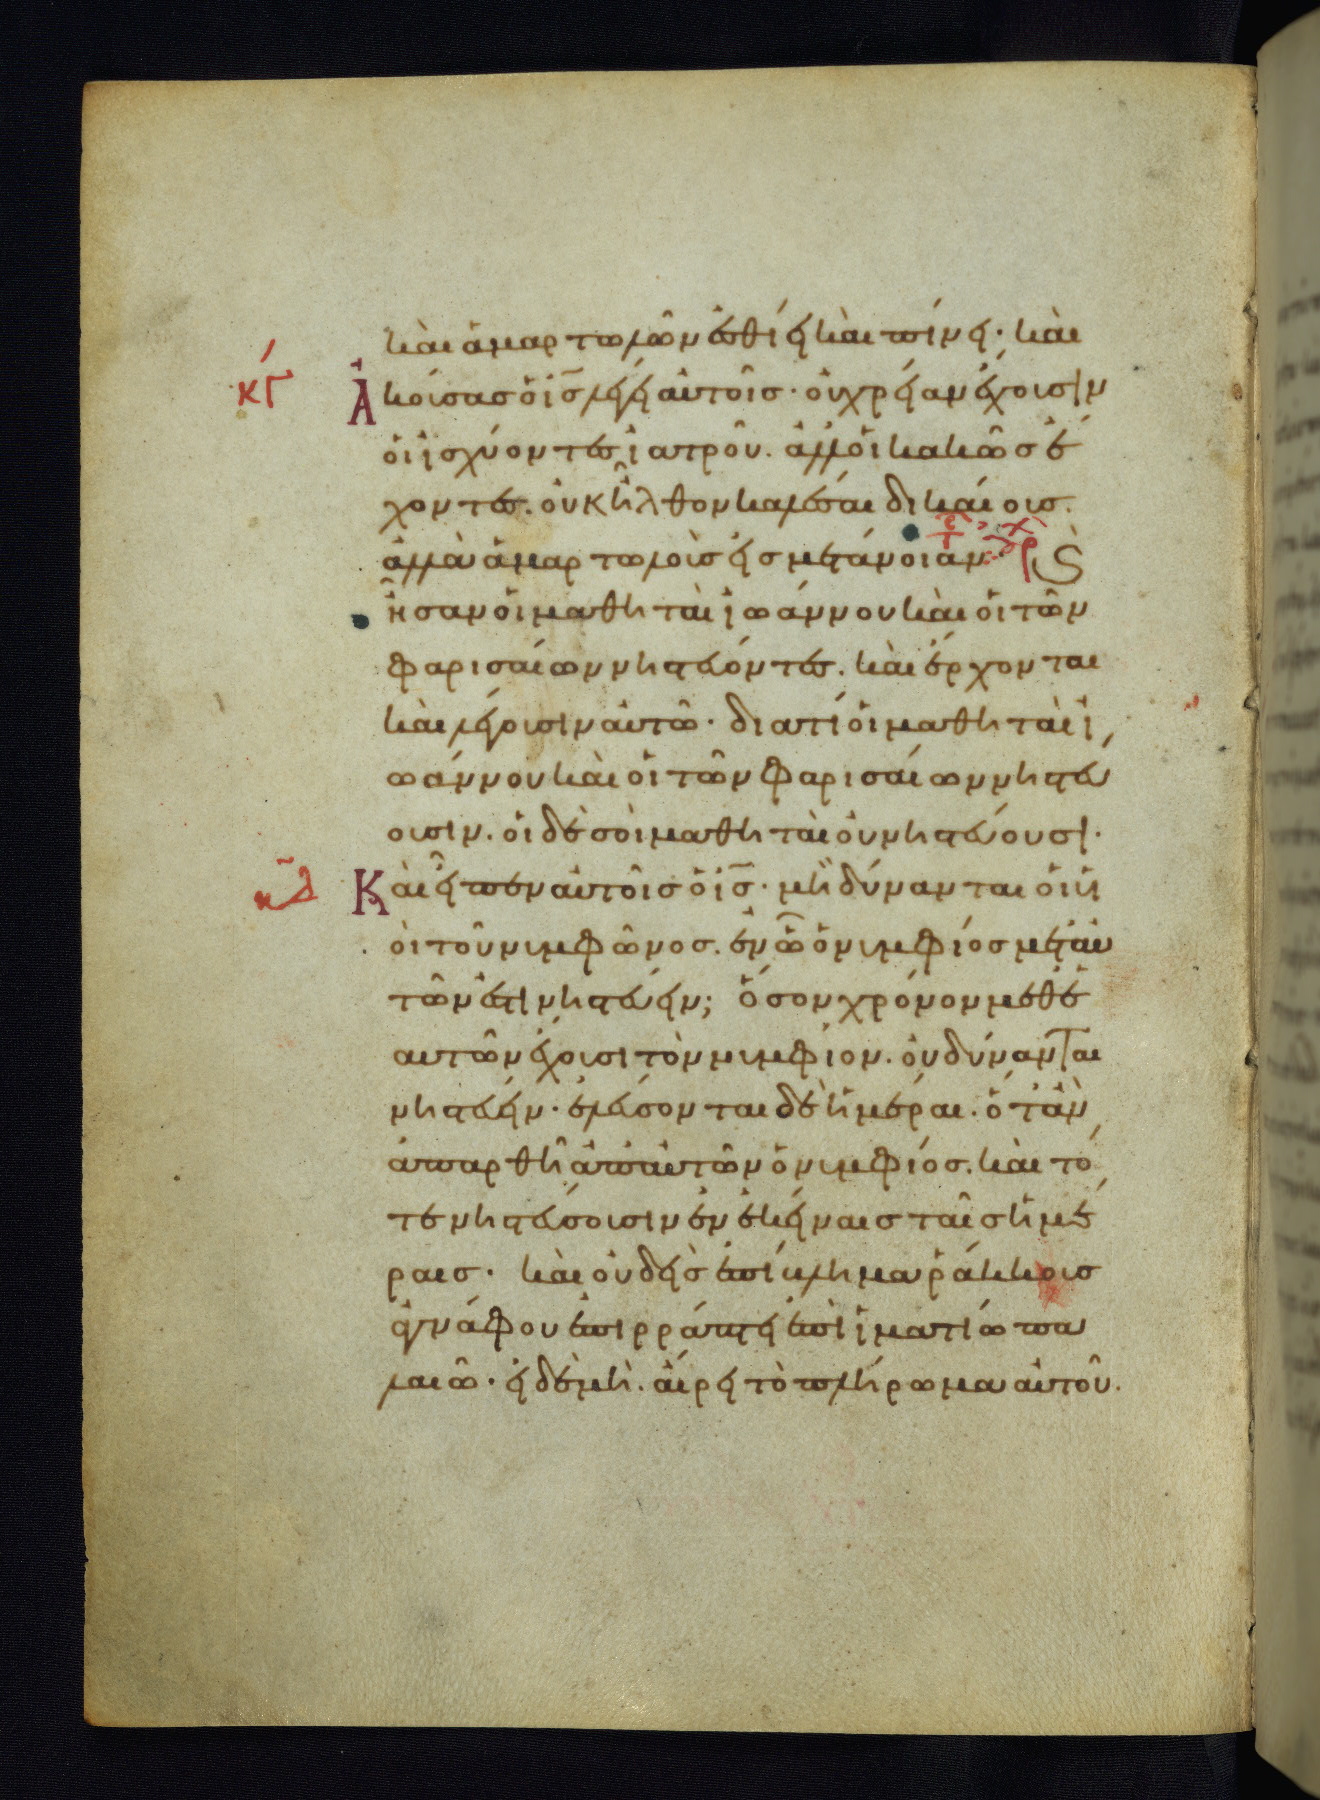 καὶ ἁμαρτωλῶν ἐσθίει καὶ πίνει· καὶ
κγ Ἀκούσας ὁ ι̅ς̅ λέγει αὐτοῖς· οὐ χρείαν ἔχουσιν
οἱ ἰσχύοντες ἰατροῦ. ἀλλ' οἱ κακῶς ἔ
χοντες. οὐκ ἦλθον καλέσαι δικαίους.
ἀλλὰ ἁμαρτωλοὺς εἰς μετάνοιαν·
ἦσαν οἱ μαθηταὶ ἰωάννου καὶ οἱ τῶν
φαρισαίων νηστεύοντες. καὶ ἔρχονται
καὶ λέγουσιν αὐτῶ· διατί οἱ μαθηταὶ ἰ
ωάννου καὶ οἱ τῶν φαρισαίων νηστεύ
ουσιν. οἱ δὲ σοὶ μαθηταὶ οὐ νηστεύουσι·
κδ Καὶ εἶπεν αὐτοῖς ὁ ι̅ς̅· μὴ δύνανται οἱ υἱ
οὶ τοῦ νυμφῶνος. ἐν ὧ ὁ νυμφίος μετ' αὐ
τῶν ἐστιν νηστεύειν; ὅσον χρόνον μεθ' ἑ
αυτῶν ἔχουσι τὸν νυμφίον. οὐ δύνανται
νηστεύειν· ἐλεύσονται δὲ ἡμέραι. ὅταν
ἀπαρθῆ ἀπ' αὐτῶν ὁ νυμφίος. καὶ τό
τε νηστεύσουσιν ἐν ἐκείναις ταῖς ἡμέ
ραις· καὶ οὐδεὶς ἐπίβλημα ῥάκκους
ἀγνάφου ἐπιρράπτει ἐπὶ ἱματίω πα
λαιῶ· εἰ δὲ μὴ. αἴρει τὸ πλήρωμα αὐτοῦ.